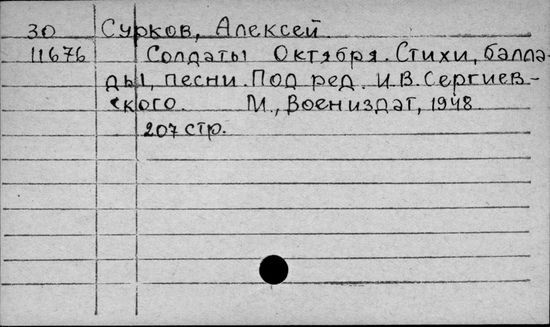 30 Сурков, Алексей.
11676 Солдаты Октября. Стихи, балла-
ды, песни. Под ред. И.В. Сергиев-
ского. М., Воениздат, 1948.
207 стр.